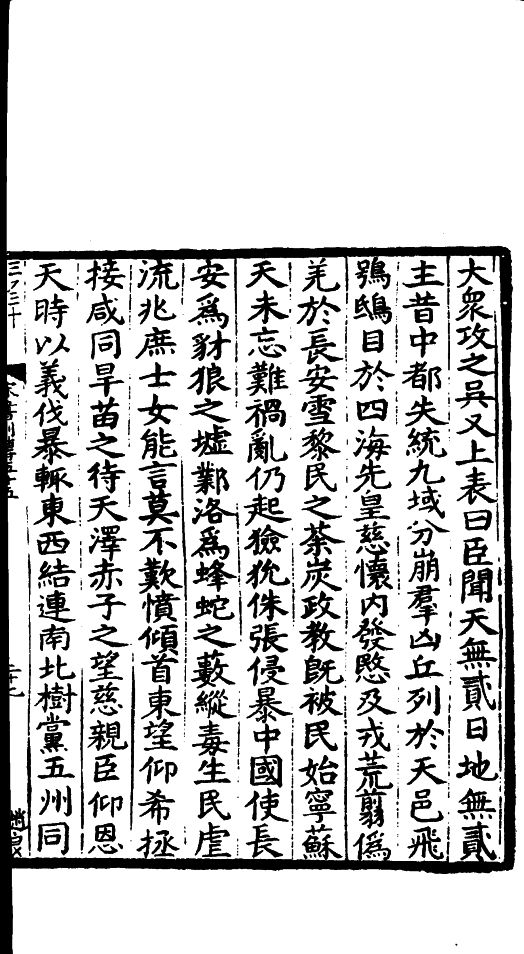 大衆攻之吳又上表曰臣聞天無貳日地無貳
主昔中都失統九域分崩羣凶丘列於天邑飛
鴞鴟目於四海先皇慈懷內發愍及戎荒翦僞
羌於長安雪黎民之荼炭政教既被民始寧蘇
天未忘難禍亂仍起獫狁侏張侵暴中國使長
安爲豺狼之墟鄴洛爲蜂蛇之藪縱毒生民虐
流兆庶士女能言莫不歎憤傾首東望仰希拯
接咸同旱苗之待天澤赤子之望慈親臣仰恩
天時以義伐暴輒東西結連南北樹黨五州同